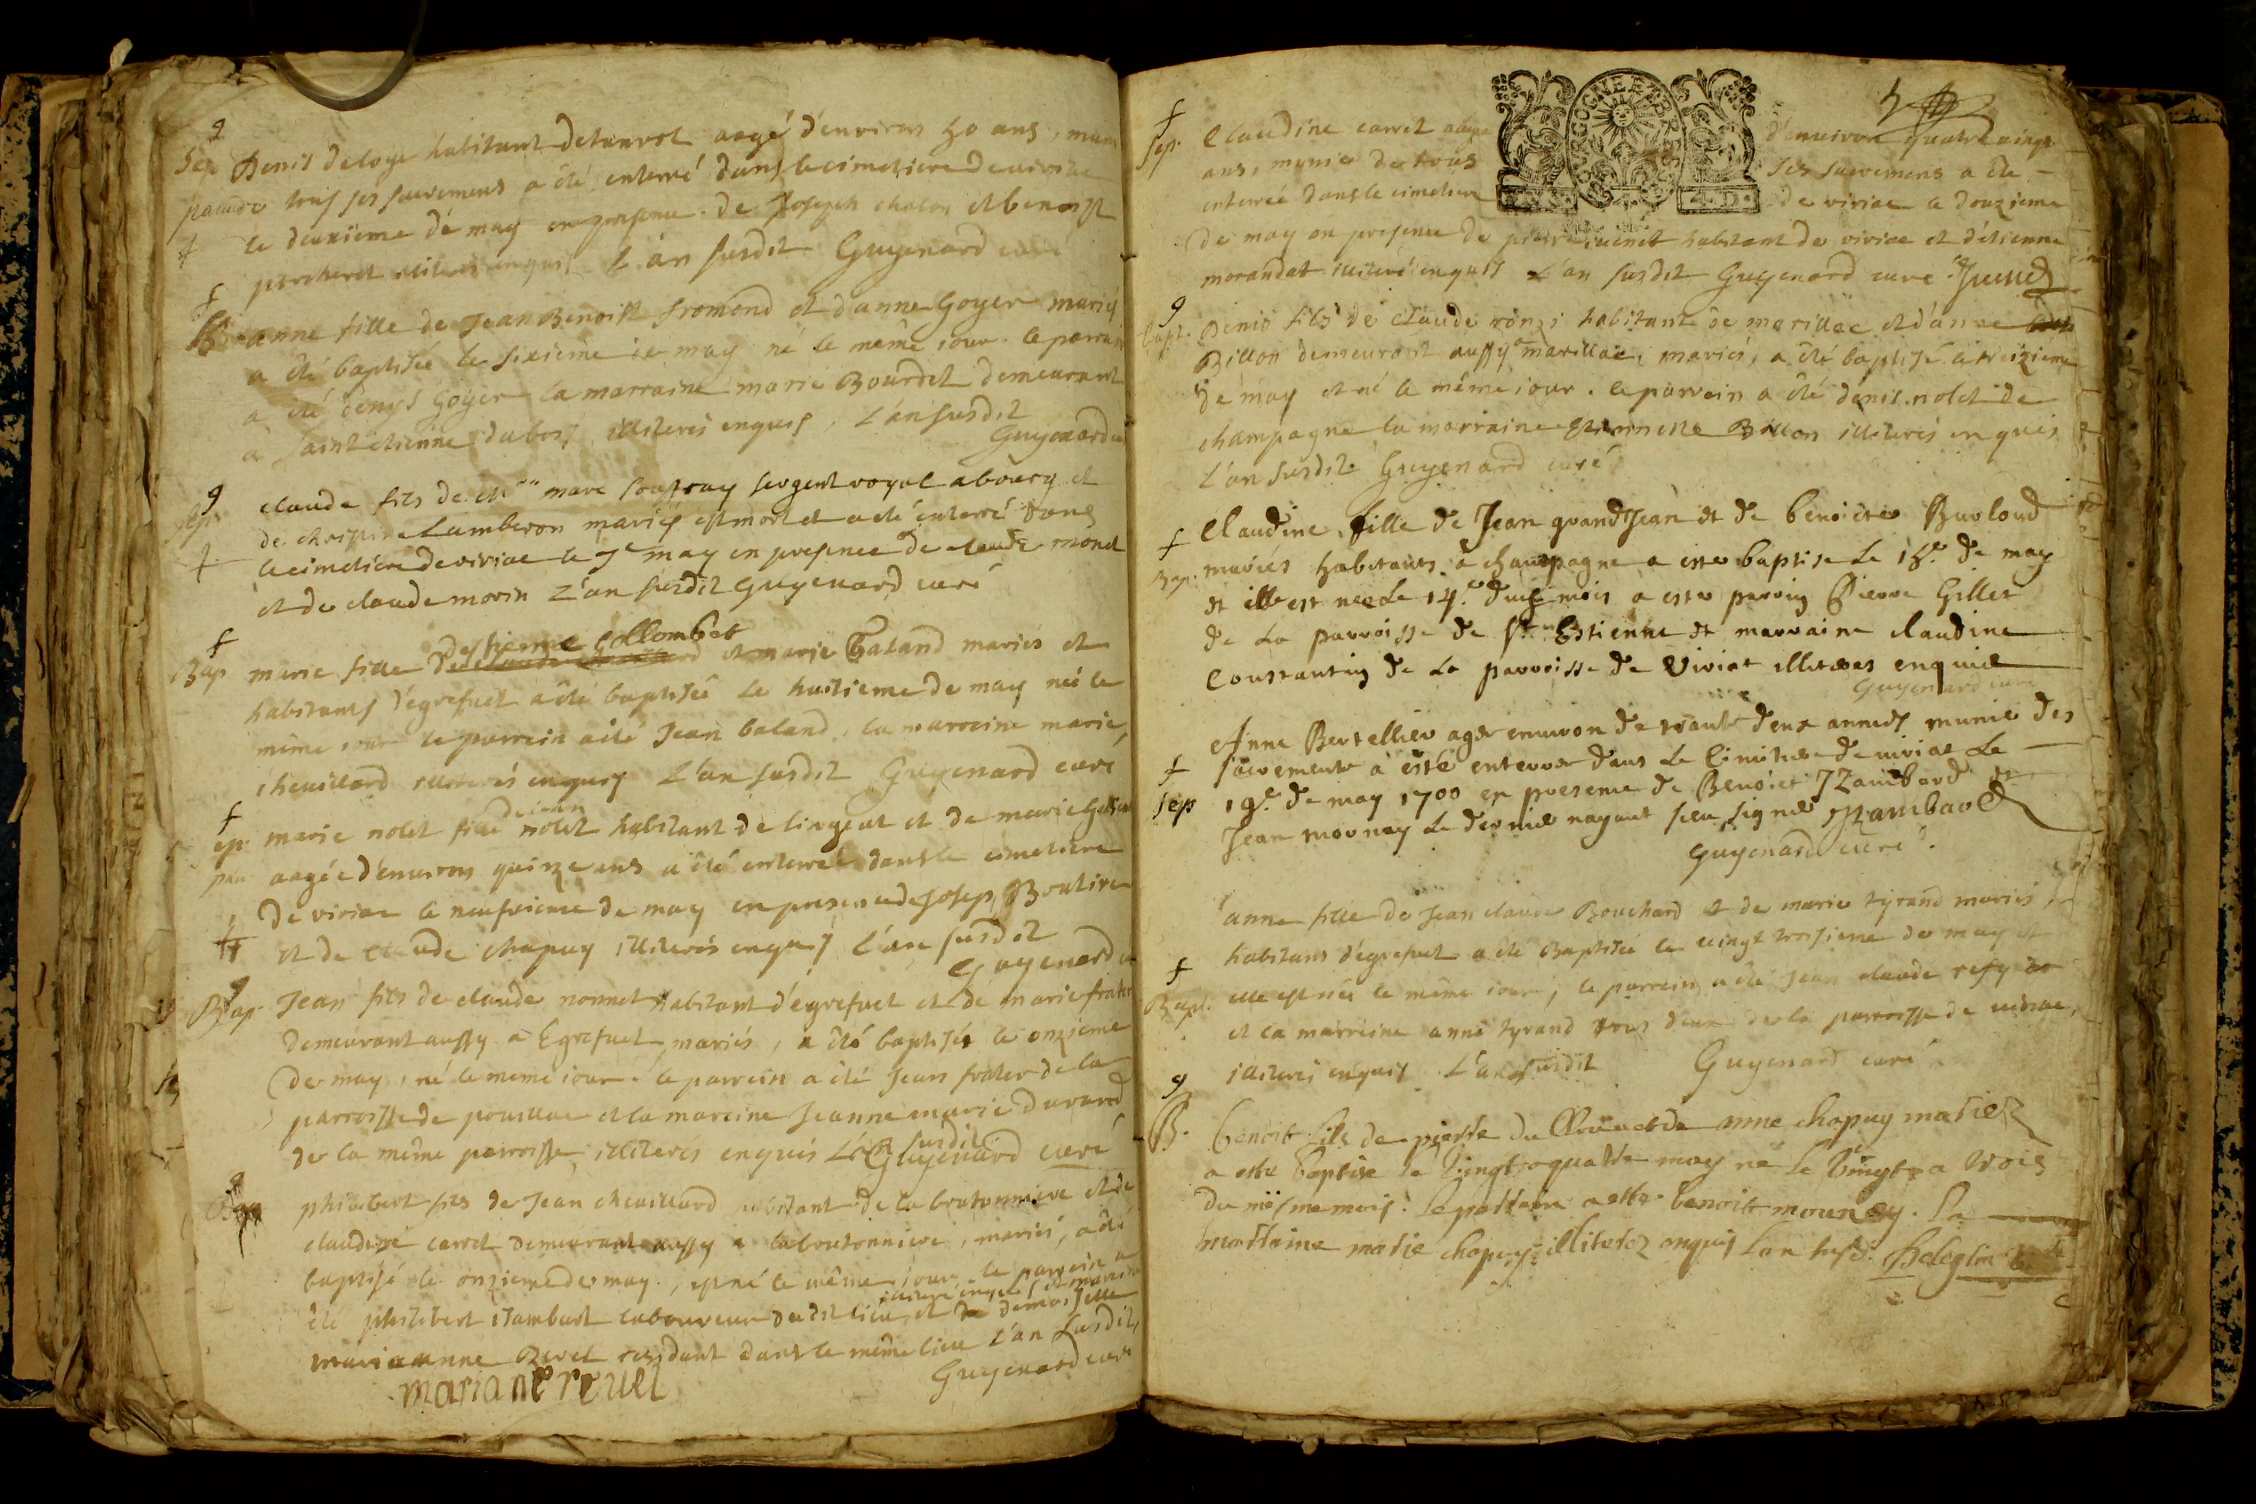 g
Sep. Denis deloge habitant de aagé d'environ 40 ans, muni
pauure tous ses sacremens a été enterré dans le cimetiere de viriac
le deuxieme dé may en presence de Joseph chalon et benoist
percheret illiterés enquis L'an susdit Guyenard curé
f
B anne fille de Jean Benoist fromond et d'anne Goyer mariés
a été baptisée le sixieme de may né le même iour. le parrain
a été denys Goyer la marraine marie Bourdet demeurant
a saint etienne dubois illiterés enquis, L'an susdit
Guyenard curé
g
sep. claude fils de me marc sergent royal a bourg et
de Lamberon mariés est mort et a été enterré dans
le cimetiere de viriac le 7e may en presence de claude monet
et de claude morin L'an susdit Guyenard curé
f
d'estienne Collombet
Bap marie fille et marie Baland mariés et
habitants d'égrefuet a été baptisée le huitieme de may née le
même iour le parrein a été Jean baland, la marreine marie
cheuillard illiterés enquis L'an susdit Guyenard curé
f
de iean
sep. marie nolet fille nolet habitant de lingeat et de marie
pau aagée d'enuiron quinze ans a été enterrée dans le cimetiere
de viriac le neufuieme de may en presence de Joseph
et de claude chapuy illiterés enquis L'an susdit
Guyenard curé
g
Bap. Jean fils de claude nonnet habitant d'égrefuet et de marie frater
demeurant aussy a Egrefuet mariés, a été baptisé le onzieme
de may, né le meme iour. le parrein a été Jean frater de la
parroisse de pouillac et la mareine Jeanne marie durand
de la même parroisse, illiterés enquis L'an susdit
Guyenard curé
g
Bap philibert fils de Jean cheuillard habitant de la boutonniere et de
claudine carret demeurant aussy a laboutonniere, mariés, a été
baptisé le onzieme de may, est né le même iour le parrein a
illiteré enquis et marreine
été philibert iambart laboureur du dit lieu, et de demoiselle
marieanne Revel residant dans le même lieu L'an susdit,
Guyenard curé
mariane revel
f
Sep. Claudine carret aagée d'enuiron quatre vingt
ans, munie de tous ses sacremens a été
enterrée dans le cimetiere de viriac le douzieme
de may en presence de pierre cuenet habitant de viriac et d'étienne
morandat illiteré enquis L'an susdit Guyenard curé
g
Bapt. Denis fils de claude ronzi habitant de marillac et d'anne
Billon demeurant aussy a marillac, mariés, a été baptisé le treizieme
de may et né le même iour. le parrein a été denis nolet de
champagne la marraine Billon illiterés enquis
L'an susdit Guyenard curé
f
Bap. Claudine fille de Jean grandJean et de benoicte Burloud
mariés habitants a champagne a este baptise Le 15e de may
et elle est nee Le 14e dudit mois a este parrin Pierre Gillet
de La parroisse de St Estienne et marraine claudine
Constantin de La parroisse de Viriat illiteres enquis
Guyenard curé
f
Sep Anne Bertellier agee enuiron de trante deux annees munie des
sacrements a esté enterree dans Le Cimitiere de viriat Le
19e de may 1700 en presence de Benoict Jzambard et
Jean mornay Le dernier nayant sceu signer Jzambard
Guyenard curé.
f
Bapt. anne fille de Jean claude Bouchard et de marie tyrand mariés,
habitans d'égrefuet a été Baptisée le vingt troisieme de may et
elle est née le même iour, le parrein a été Jean claude
et la marreine anne tyrand tous deux de la parroisse de viriac,
illiterés enquis L'an susdit Guyenard curé
g
B. benoit fils de pierre du et de anne chapuy mariez
a esté baptise le vingt quatre may né le vingt trois
du mesme mois. Le parrain a esté benoit mornay. La
marraine marie chapuys illiterez enquis L'an susd.